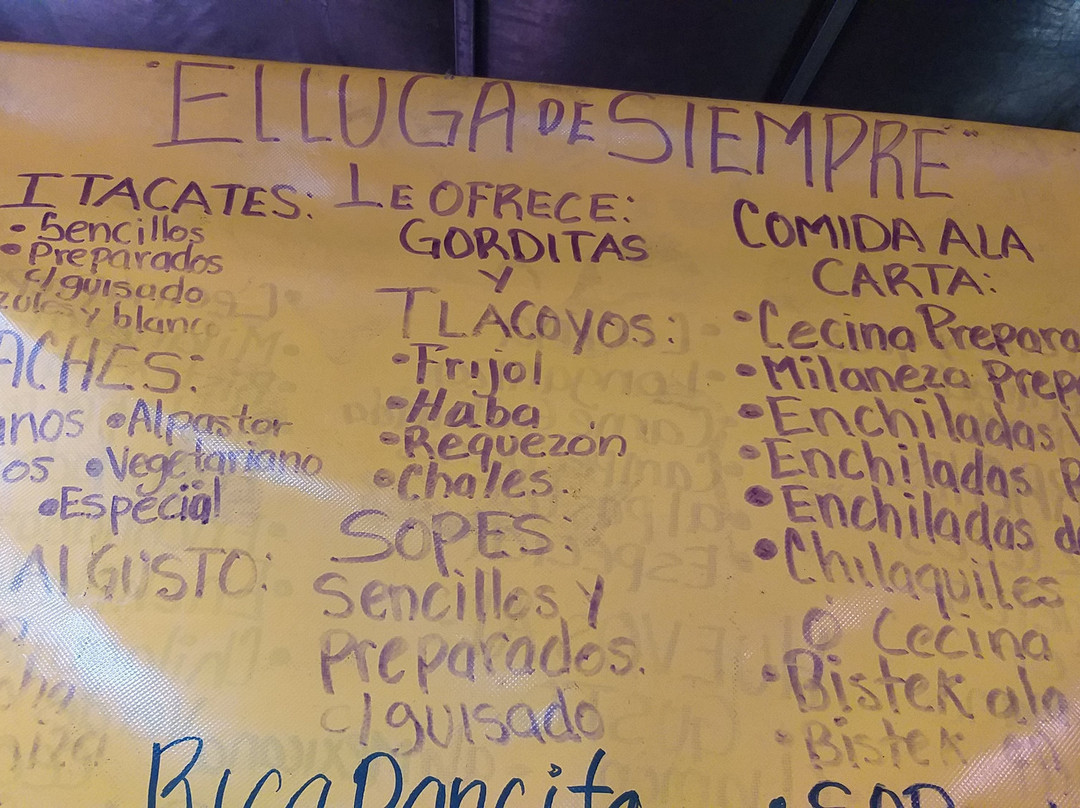 "ELLUGA DE SIEMPRE"
ITACATES:
• Sencillos
• Preparados
c/guisado
zules y blanco
ACHES:
anos • Alpastor
os • Vegetariano
• Especial
AL GUSTO:
LE OFRECE:
GORDITAS
Y
TLACOYOS:
• Frijol
• Haba
• Requezón
• Chales.
SOPES:
Sencillos y
preparados.
c/guisado
COMIDA ALA
CARTA:
• Cecina Prepara
• Milaneza Prep
• Enchiladas
• Enchiladas
• Enchiladas d
• Chilaquiles
ó Cecina
• Bistek ala
• Bistek en
Rica Pancita